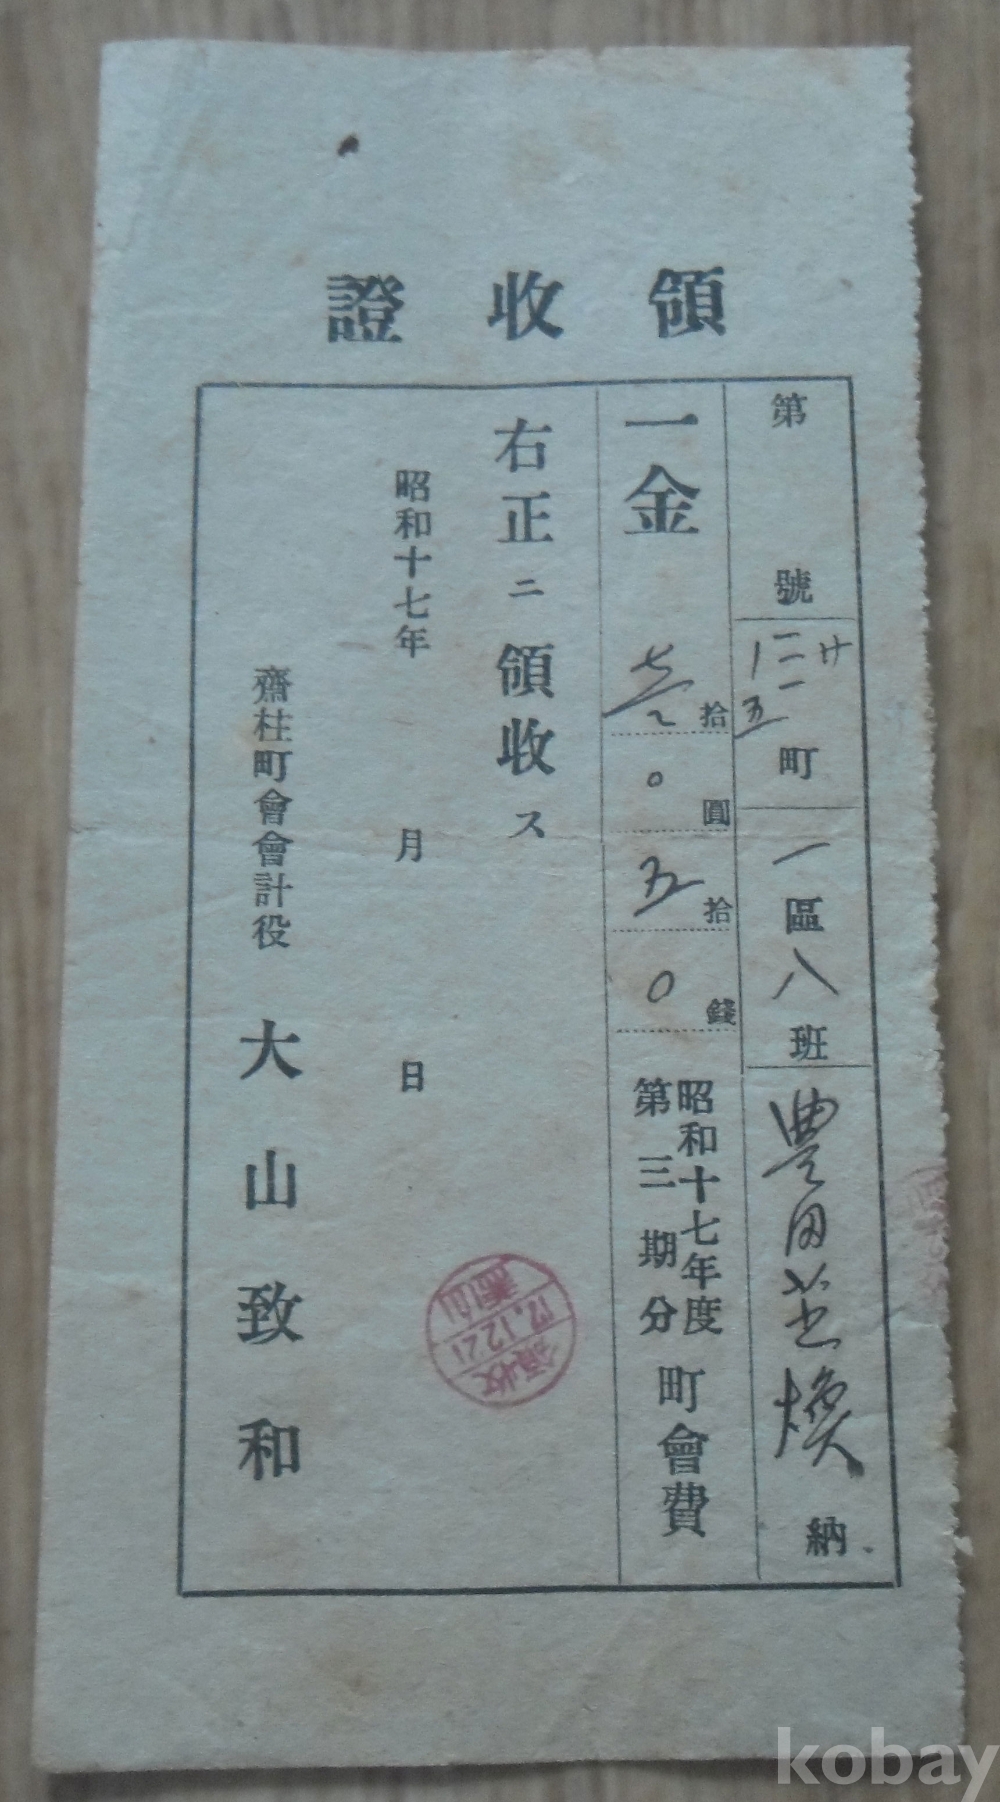 領收證
第 號
町 一區八班 豊田 煥 納
一金 拾 0圓 五拾 0錢 昭和十七年度
第三期分 町會費
右正ニ領收ス
昭和十七年 月 日
齋桂町會會計役 大山致和
領收
17.12.21
kobay